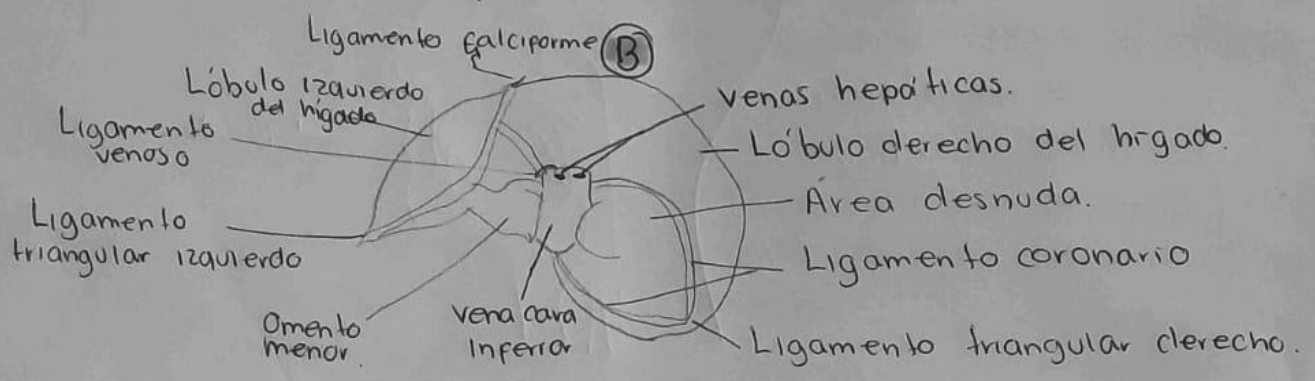 Ligamento falciforme
B
Lóbulo izquierdo
del hígado
Ligamento
venoso
Ligamento
triangular izquierdo
Omento
menor.
vena cava
Inferior
venas hepáticas.
Lóbulo derecho del hígado.
Área desnuda.
Ligamento coronario
Ligamento triangular derecho.